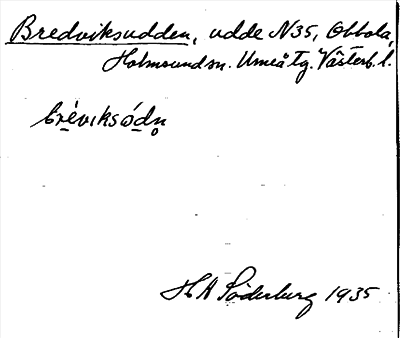 Bredviksudden, udde N35, Obbola,
Holmsund sn. Umeå tg. Västerb. l.
brèviksódn̥
H A Söderberg 1935